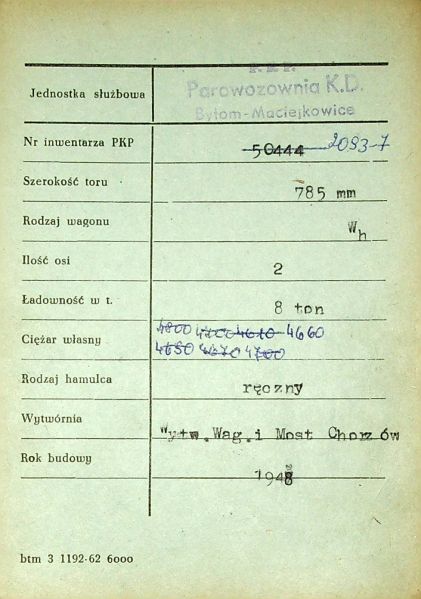 P. K. P.
Jednostka służbowa Parowozownia K.D.
Bytom-Maciejkowice
Nr inwentarza PKP 50444 2093-7
Szerokość toru 785 mm
Rodzaj wagonu Wh
Ilość osi 2
Ładowność w t. 8 ton
4800 4700 4610 4660
Ciężar własny
4650 4670 4700
Rodzaj hamulca ręczny
Wytwórnia Wytw.Wag.i Most Chorzów
Rok budowy 1948
btm 3 1192-62 6000